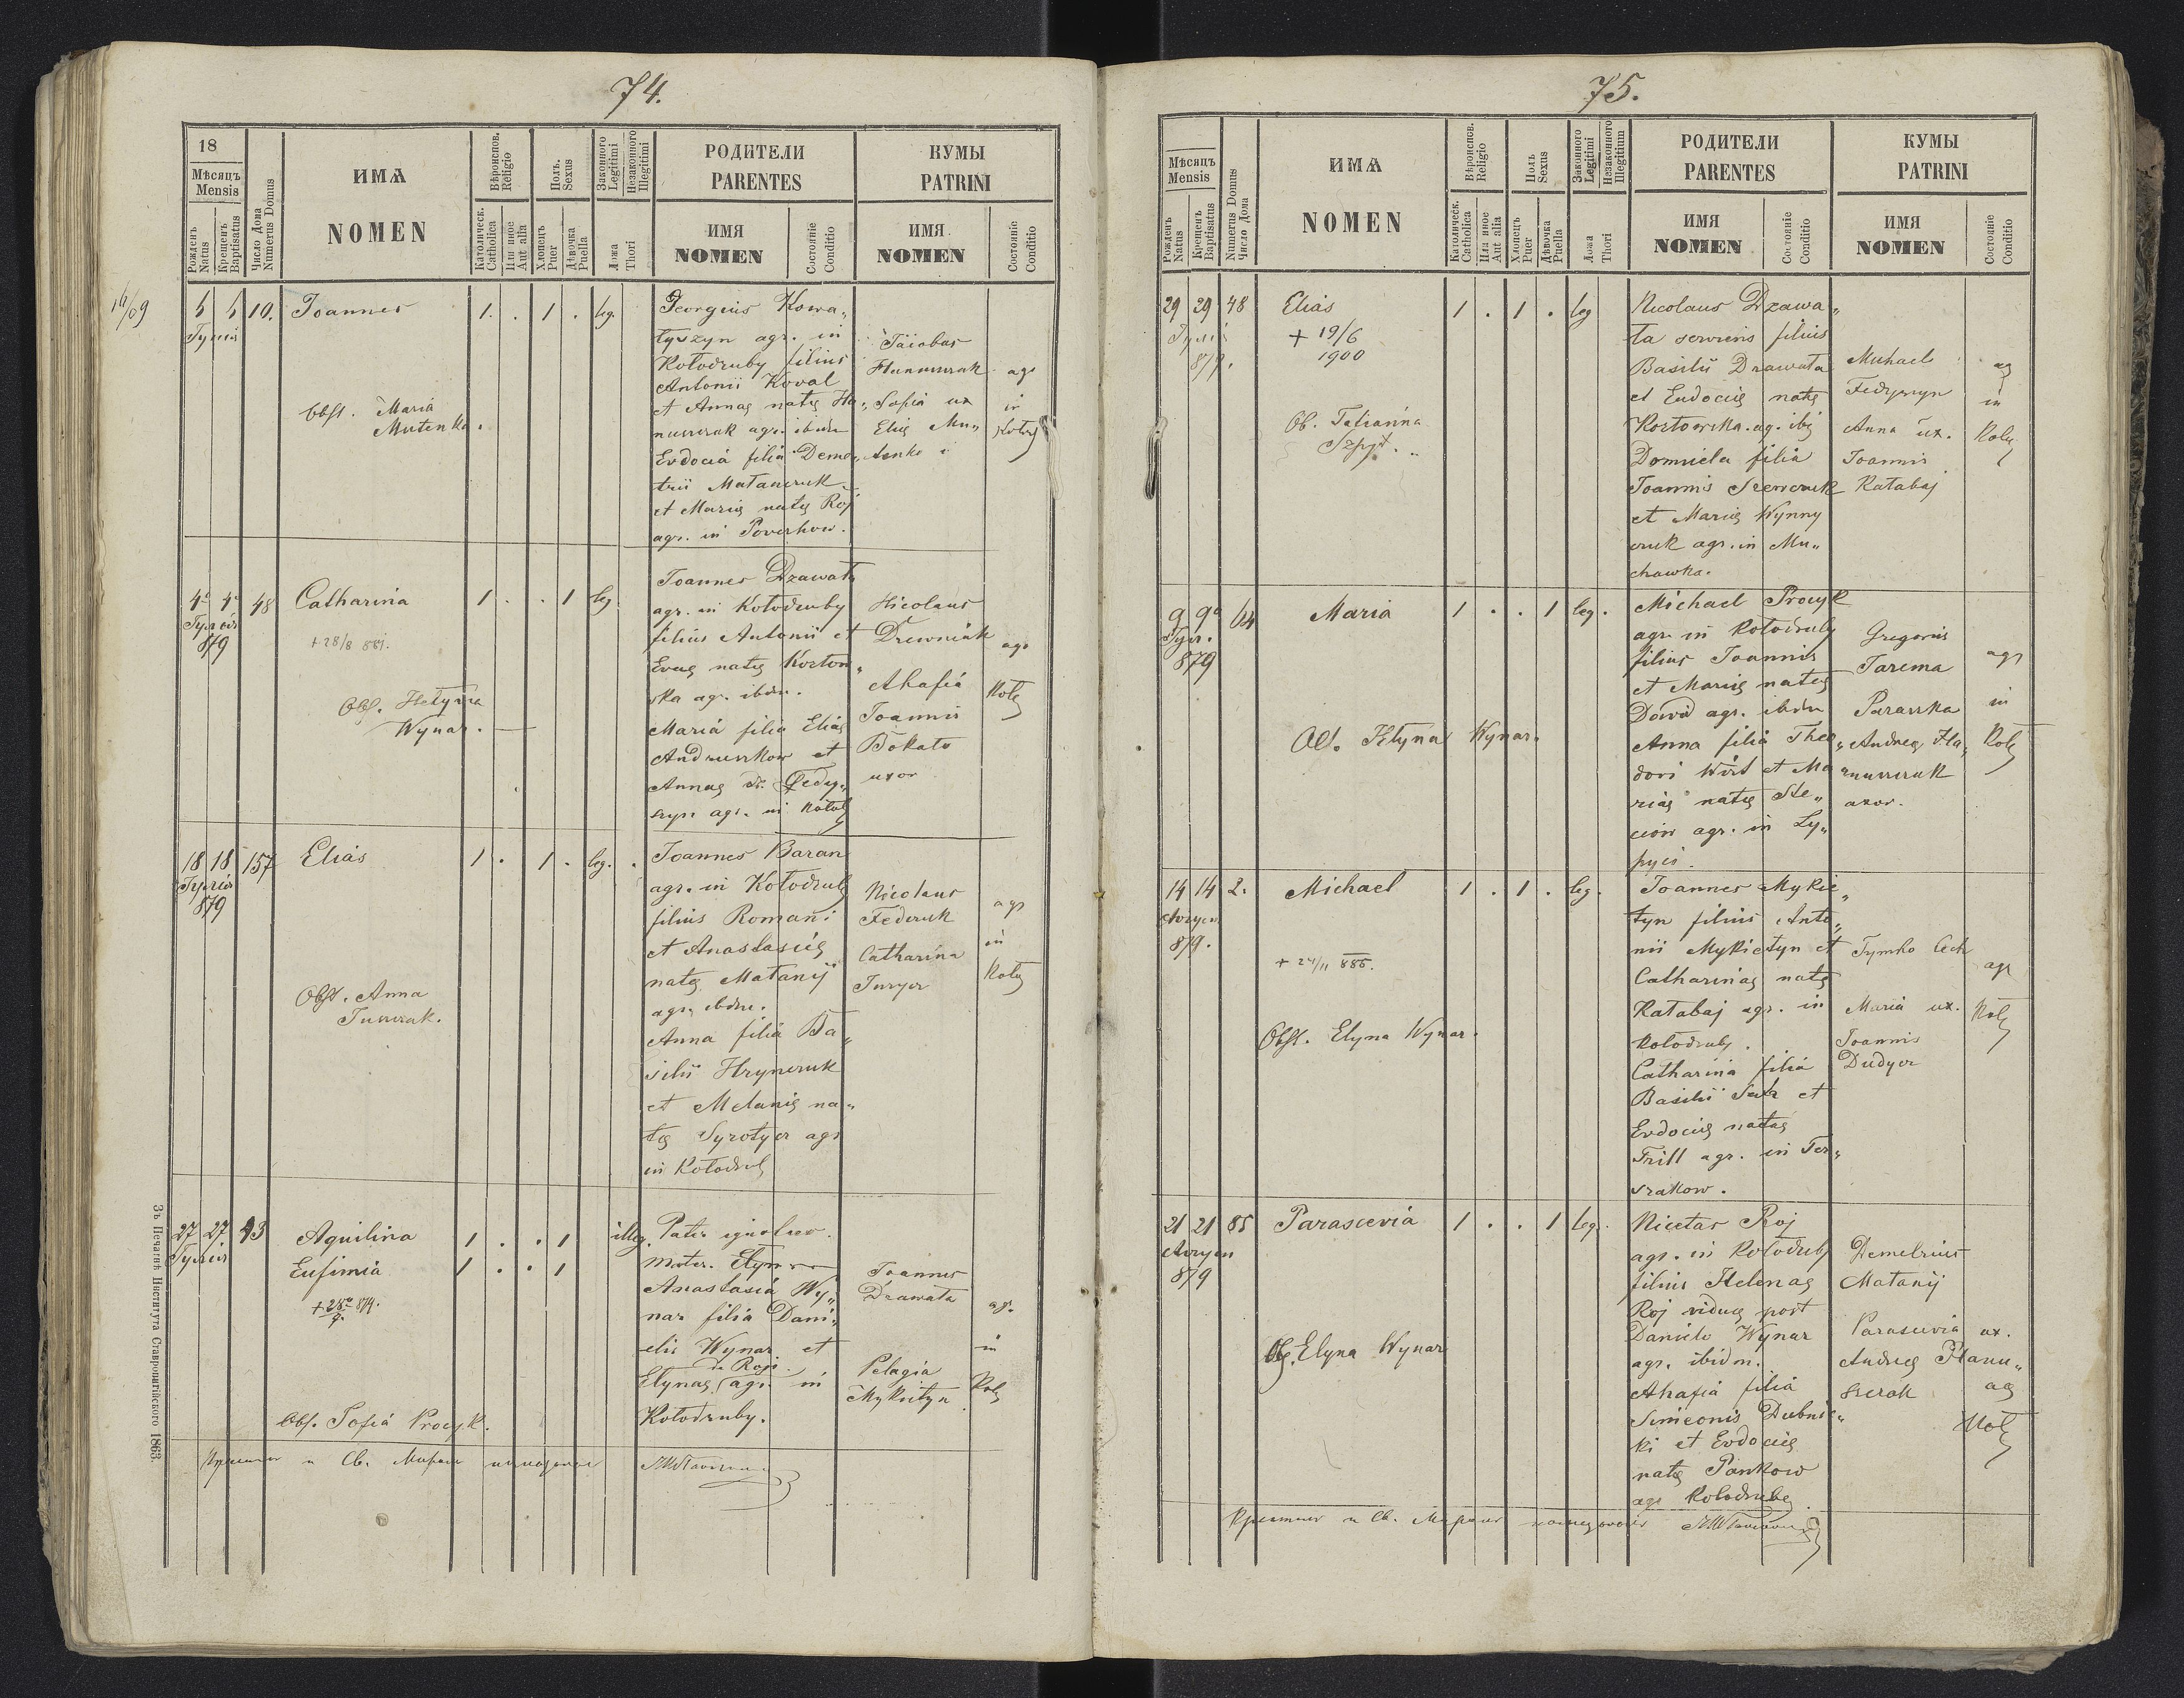 74.
18
Мѣсяцъ
Mensis
Рожденъ
Natus
Крещенъ
Baptisatus
Число Дома
Numerus Domus
ИМѦ
NOMEN
Вѣроиспов.
Religio
Католическ.
Catholica
Или иное
Aut alia
Полъ.
Sexus
Хлопецъ
Puer
Дѣвочка
Puella
Законного
Legitimi
Незаконного
Illegitimi
Ложа
Thori
РОДИТЕЛИ
PARENTES
ИМЯ
NOMEN
Состояніе
Conditio
КУМЫ
PATRINI
ИМЯ
NOMEN
Состояніе
Conditio
16/09
10. Joannes 1. . 1 . leg.
Georgius Kowa„
tyszyn agr. in
Kołodruby filius
Antonii Koval
et Annae natae Ha„
nuszczak agr. ibidm
Evdocia filia Deme„
trii Matanczuk
et Mariae natae Roj
agr. in Poverhow.
Jacobus
Hanuszczak agr
Sofia ux in
Eliae Mu„ Kołodr
tenko
Obst. Maria
Mutenka.
4 4 48 Catharina 1 . . 1 leg
879
+ 28/8 881.
Obst. Helyna
Wynar.
Joannes Dzawata
agr. in Kołodruby
filius Antonii et
Evae natae Kozton„
ska agr. ibdm.
Maria filia Eliae
Andruszkow et
Annae de Fedy„
szyn agr. in Kołod
Nicolaus
Drewniak agr
Ahafia Koł
Joannis
Bokało
uxor
18 18 157 Elias 1 . 1 . leg. .
879
Obst. Anna
Tuszczak.
Joannes Baran
agr. in Kołodrub
filius Romani
et Anastasiae
natae Matanij
agr. ibdm.
Anna filia Ba„
silii Hrynczuk
et Melaniae na„
tae Syrotycz agr
in Kołodrub
Nicolaus
Federuk agr
Catharina in
Turycz Koł
27 27 43 Aquilina 1 . . 1 illeg.
Eufimia 1 . . 1
+ 28/9 879.
Obst. Sofia Procyk.
Pater ignotus.
Mater
Anastasia Wy„
nar filia Dani„
elis Wynar et
de Roji
Elynae agr. in
Kołodruby.
Joannes
Dzawata agr.
in
Pelagia Koł
Mykietyn
Зъ Печатнѣ Института Ставропигійского 1863.
75.
Мѣсяцъ
Mensis
Рожденъ
Natus
Крещенъ
Baptisatus
Numerus Domus
Число Дома
ИМѦ
NOMEN
Вѣроиспов.
Religio
Католическ.
Catholica
Или иное
Aut alia
Полъ
Sexus
Хлопецъ
Puer
Дѣвочка
Puella
Законного
Legitimi
Незаконного
Illegitimum
Ложа
Thori
РОДИТЕЛИ
PARENTES
ИМЯ
NOMEN
Состояніе
Conditio
КУМЫ
PATRINI
ИМЯ
NOMEN
Состояніе
Conditio
29 29 48 Elias 1 . 1 . leg
879.
+ 19/6
1900
Ob. Tatianna
Szpyt.
Nicolaus Dzawa„
ta serviens filius
Basilii Drawata
et Eudociae natae
Kostowska ag. ibi
Domicela filia
Joannis Szewczuk
et Mariae Wynny
czuk agr. in Mu„
chawka.
Michael ag
Fedyszyn in
Anna ux. Koł
Joannis
Katabaj
9 9 64 Maria 1 . . 1 leg.
879
Obst. Helyna Wynar.
Michael Procyk
agr. in Kołodruby
filius Joannis
et Mariae natae
Dowd agr. ibdm
Anna filia Theo„
dori Wirt et Ma
riae natae Ste„
ciow agr. in Ly„
pyci.
Gregorius
Jarema agr
Paraska in
Andreae Ha„ Koł
nuszczak
uxor.
14 14 2. Michael 1 . 1 . leg.
879.
+ 24/11 885.
Obst. Elyna Wynar.
Joannes Mykie„
tyn filius Anto„
nii Mykietyn et
Catharinae natae
Katabaj agr. in
Kołodruby.
Catharina filia
Basilii Sath et
Evdociae natae
Trill agr. in Ter„
szakow.
Tymko Cech agr
Maria ux. Koł
Joannis
Dudycz
21 21 85 Parascevia 1 . . 1 leg.
879
Ob. Elyna Wynar
Nicetas Roj
agr. in Kołodrub
filius Helenae
Roj viduae post
Daniele Wynar
agr. ibidm.
Ahafia filia
Simeonis Dubnic„
ki et Evdociae
natae Pankow
agr Kołodruby.
Demetrius
Matanij
Parascevia ux.
Andreae Hanu„
szczak ag
Koł